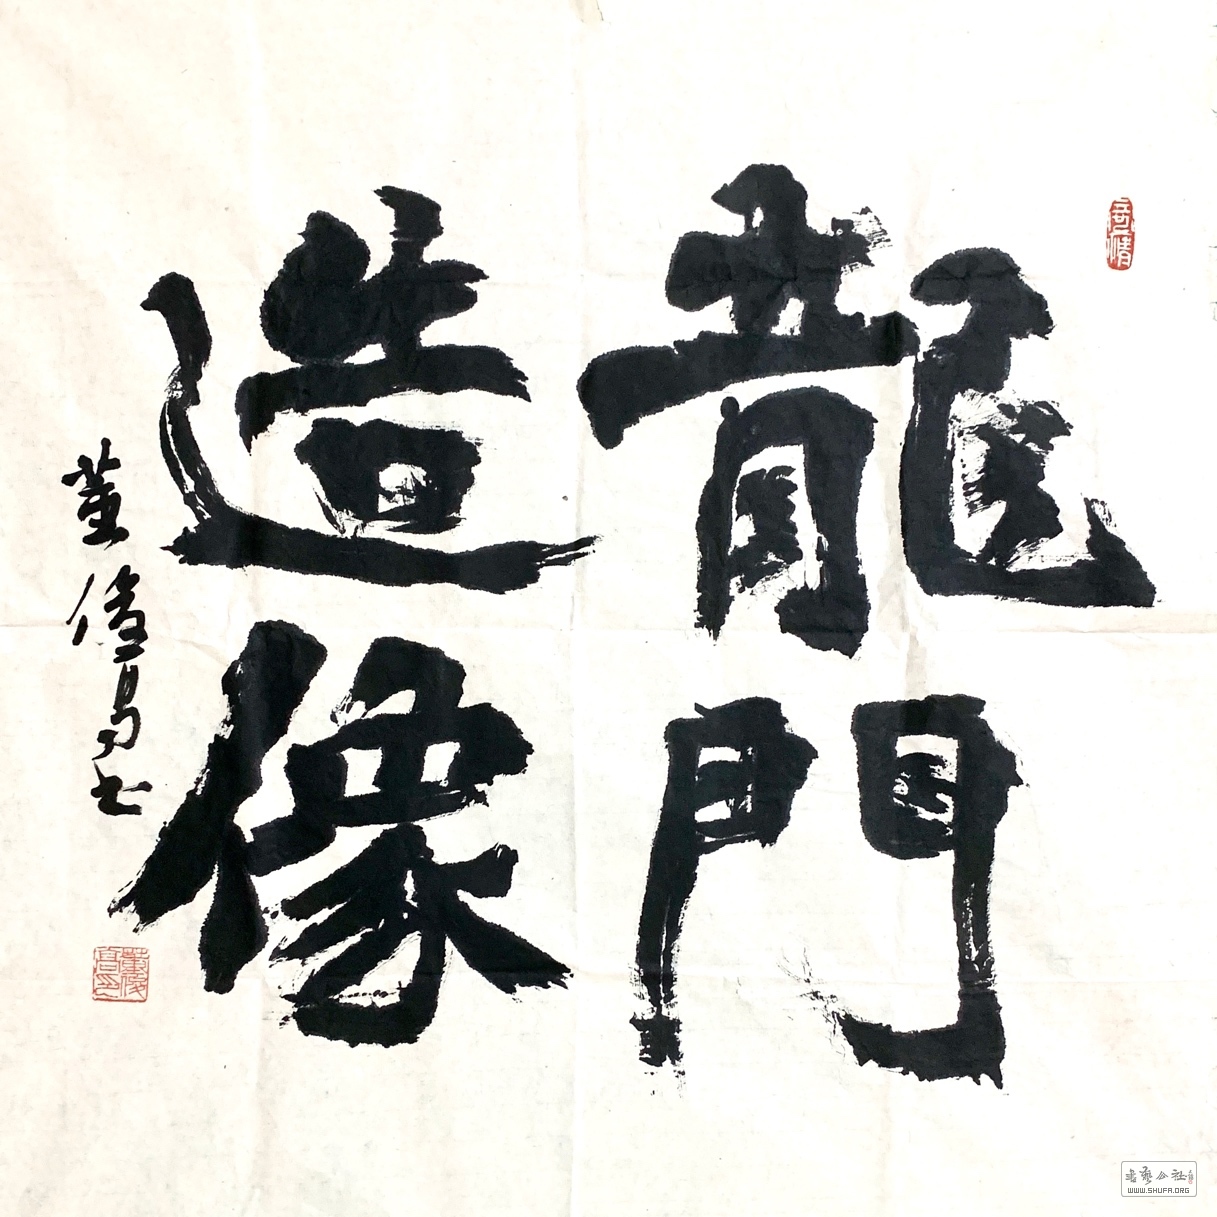 龍門
造像
董俊昌书
书艺公社
WWW.SHUFA.ORG